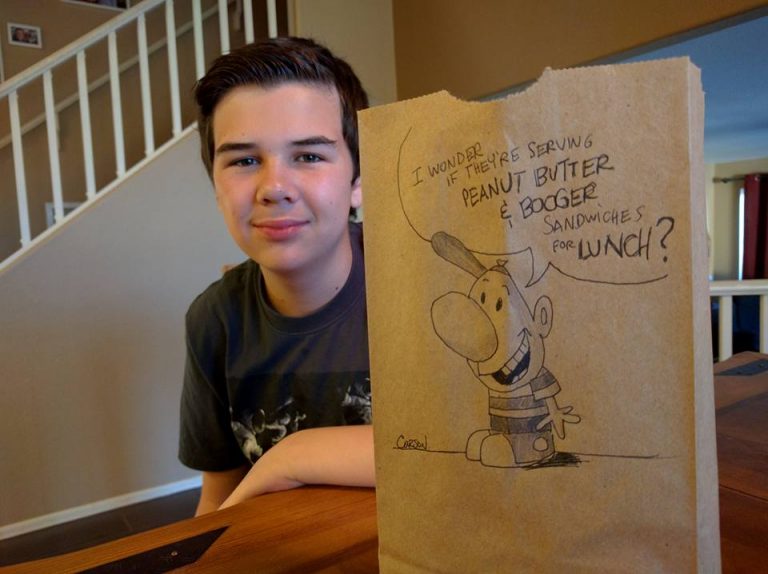 I WONDER
IF THEY'RE SERVING
PEANUT BUTTER
& BOOGER
SANDWICHES
FOR LUNCH?
CARSON